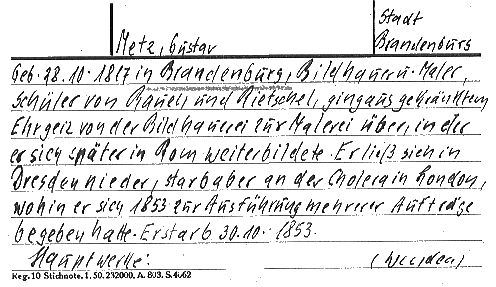 Metz, Gustav
Stadt
Brandenburg
Geb. 28.10.1817 in Brandenburg, Bildhauer u. Maler,
Schüler von Rauch und Rietschel, ging aus gekränktem
Ehrgeiz von der Bildhauerei zur Malerei über, in der
er sich später in Rom weiterbildete. Er ließ sich in
Dresden nieder, starb aber an der Cholera in London,
wohin er sich 1853 zur Ausführung mehrerer Aufträge
begeben hatte. Er starb 30.10.1853.
Hauptwerke: (wenden)
Reg. 10 Stichnote. 1. 50. 232000, A. 803. S. 4062